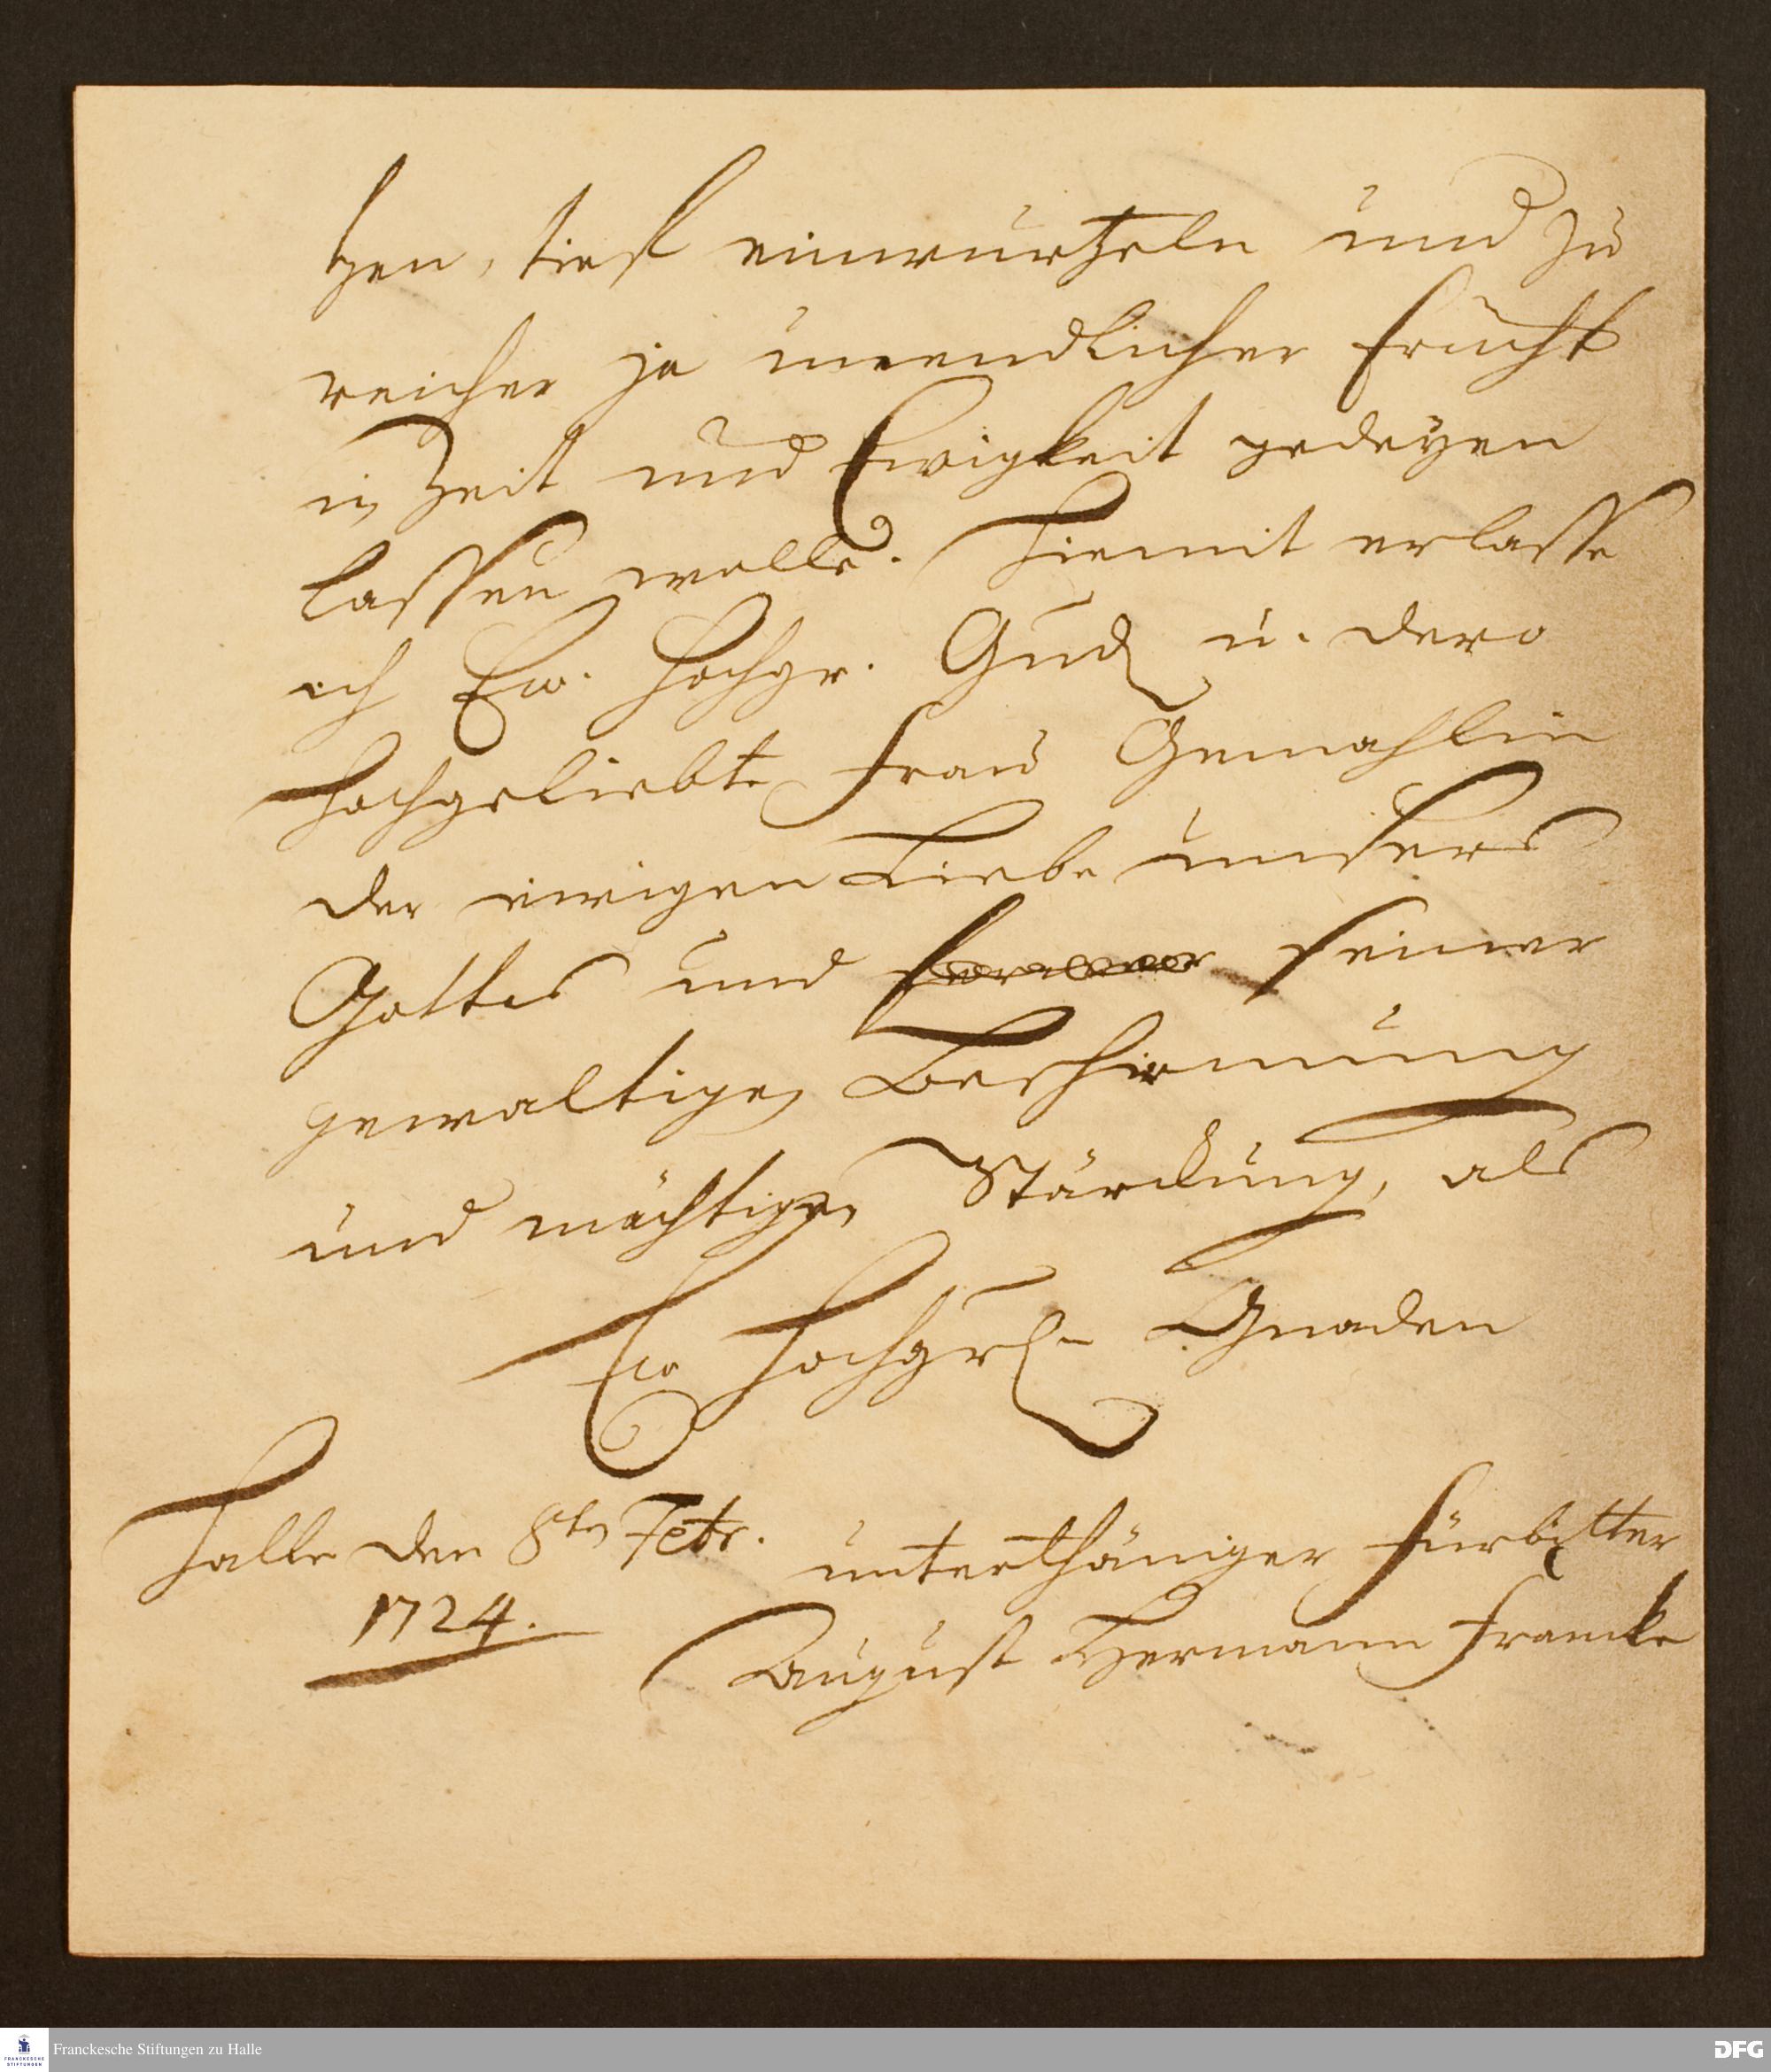 tzen, tieff einwurtzeln und zu
reicher ja unendlicher Frucht
in Zeit und Ewigkeit gedeyen
lassen wolle. Hiemit erlasse
ich Ew. Hochgr. Gnd u. dero
Hochgeliebte Frau Gemahlin
der ewigen Liebe unsers
Gottes und seiner
gewaltigen Beschirmung
und mächtigen Stärckung, als
Ew Hochgrl. Gnaden
Halle den 8ten Febr. unterthäniger Fürbitter
1724. August Hermann Francke
Franckesche Stiftungen zu Halle
FRANCKESCHE
STIFTUNGEN
DFG